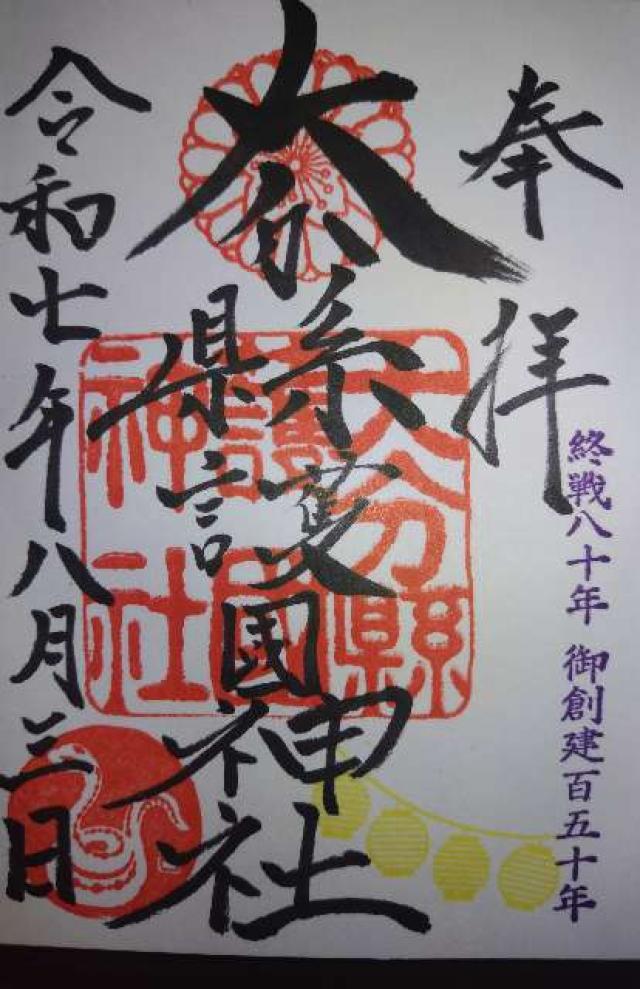 奉拝
終戦八十年 御創建百五十年
大分縣護國神社
大分縣護國神社
令和七年八月三日